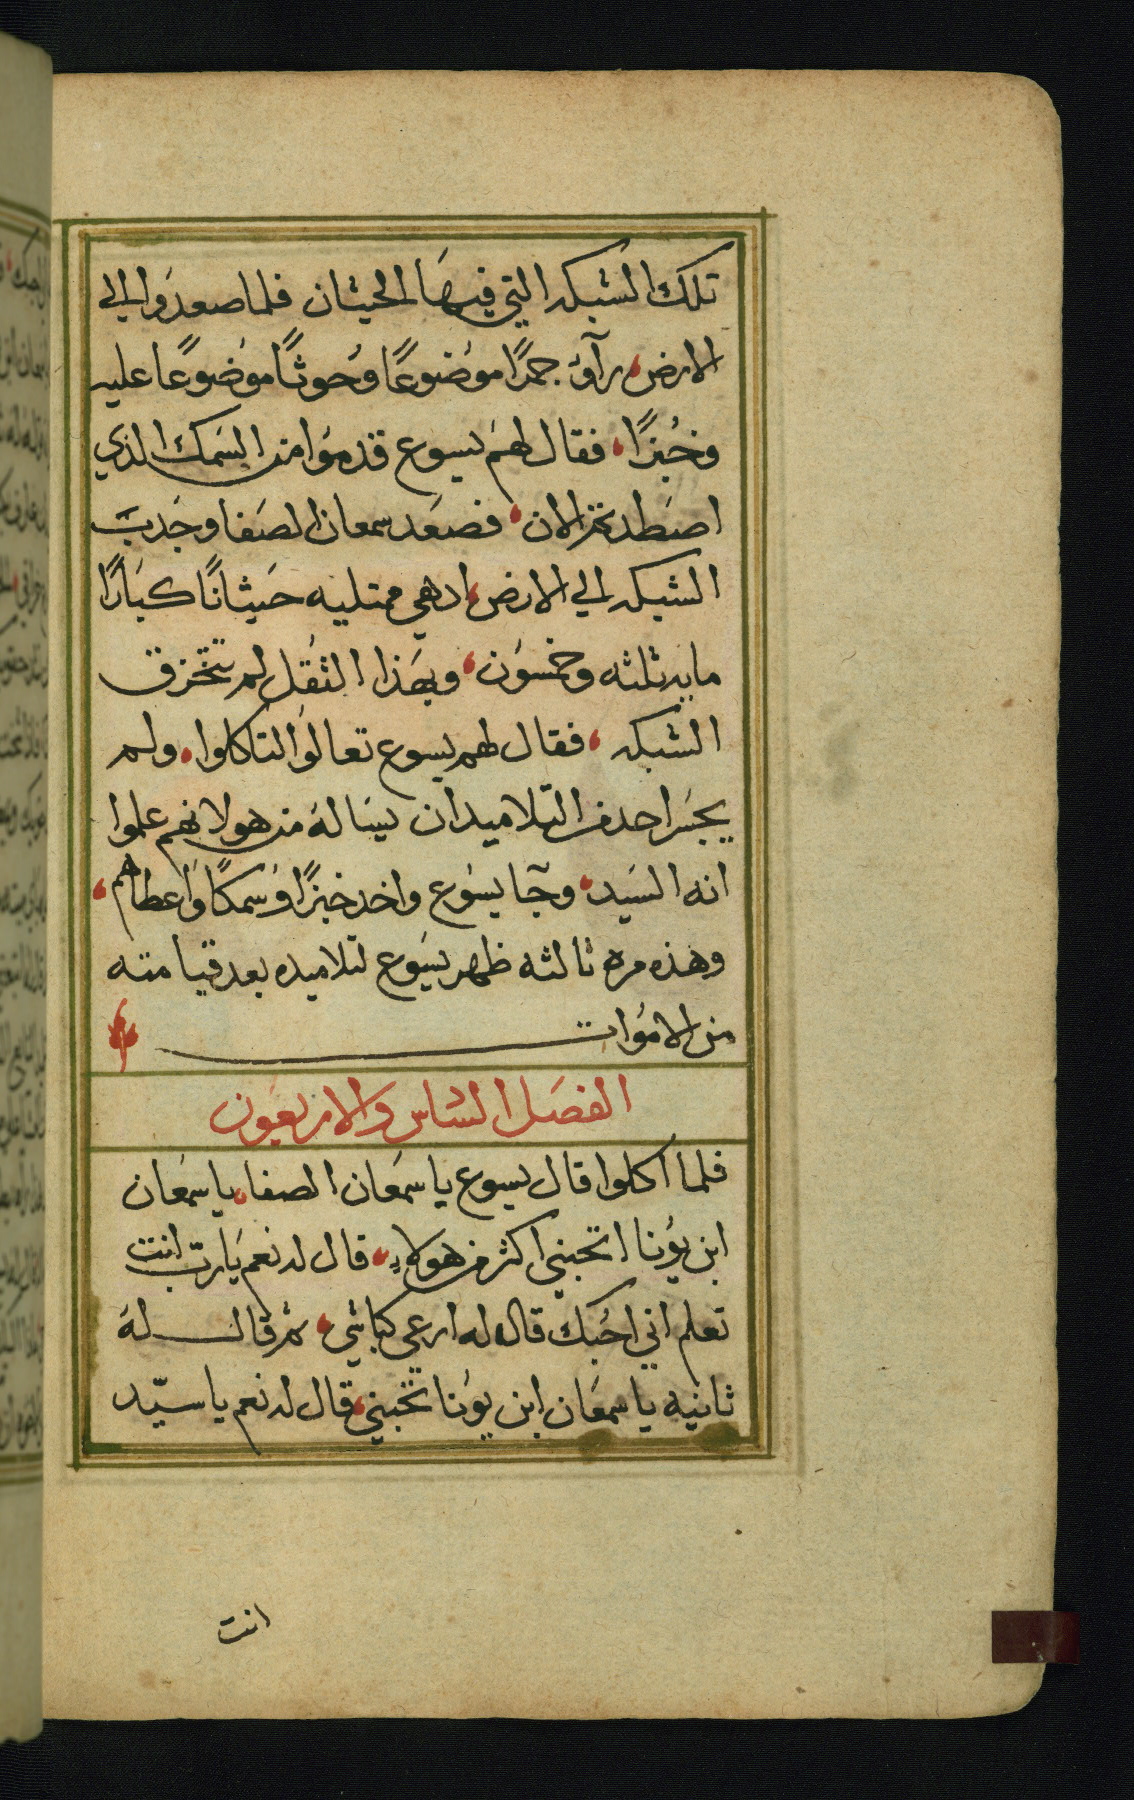 تلك الشبكه التي فيها الحيثان فلما صعدوا الي
الارض رآو جمرًا موضوعًا وحوثًا موضوعًا عليه
وخبزًا فقال لهم يسوع قدموا من السمك الذي
اصطدتم الان فصعد سمعان الصفا وجدب
الشبكه الي الارض ادهي ممتليه حيثانًا كبارًا
مايه ثلثه وخمسون وبهذا الثقل لم تتخزق
الشبكه فقال لهم يسوع تعالوا لتاكلوا ولم
يجسر احد من التلاميد ان يساله من هو لانهم علموا
انه السيد وجآ يسوع واخد خبزًا وسمكًا واعطاهم
وهذه مره ثالثه ظهر يسوع لتلاميده بعد قيامته
من الاموات
الفصل الساس والاربعون
فلما اكلوا قال يسوع ياسمعان الصفا ياسمعان
ابن يونا اتحبني اكثر من هولاء قال له نعم يارب انت
تعلم اني احبك قال له ارعي كباشي ثم قال له
ثانيه ياسمعان ابن يونا تحبني قال له نعم ياسيد
انت